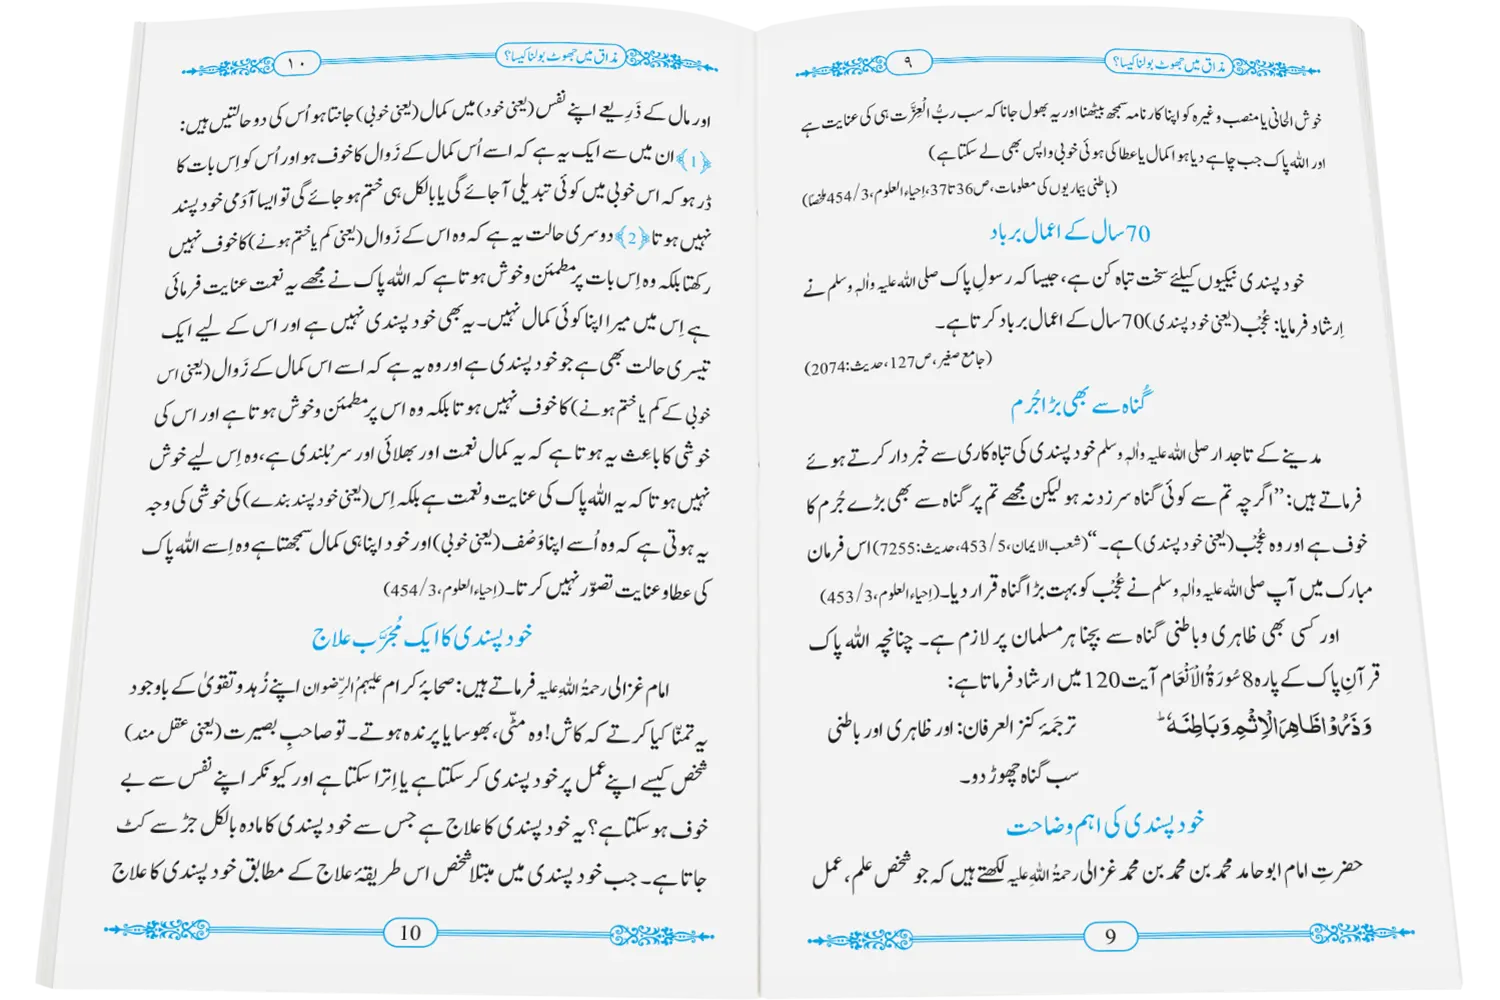 مذاق میں جھوٹ بولنا کیسا؟
۹
خوش الحانی یا منصب وغیرہ کو اپنا کارنامہ سمجھ بیٹھنا اور یہ بھول جانا کہ سب ربُّ الْعِزَّت ہی کی عنایت ہے
اور اللہ پاک جب چاہے دیا ہوا کمال یا عطا کی ہوئی خوبی واپس بھی لے سکتا ہے)
(باطنی بیماریوں کی معلومات، ص36تا37، احیاء العلوم، 3/454 ملخصاً)
70 سال کے اعمال برباد
خود پسندی نیکیوں کیلئے سخت تباہ کن ہے، جیسا کہ رسولِ پاک صلی اللہ علیہ واٰلہٖ وسلم نے
اِرشاد فرمایا: عُجْب (یعنی خود پسندی) 70 سال کے اعمال برباد کرتا ہے۔
(جامع صغیر، ص127، حدیث: 2074)
گناہ سے بھی بڑا جُرم
مدینے کے تاجدار صلی اللہ علیہ واٰلہٖ وسلم خود پسندی کی تباہ کاری سے خبردار کرتے ہوئے
فرماتے ہیں: ”اگرچہ تم سے کوئی گناہ سرزد نہ ہو لیکن مجھے تم پر گناہ سے بھی بڑے جُرم کا
خوف ہے اور وہ عُجْب (یعنی خود پسندی) ہے۔“ (شعب الایمان، 5/453، حدیث: 7255) اس فرمان
مبارک میں آپ صلی اللہ علیہ واٰلہٖ وسلم نے عُجْب کو بہت بڑا گناہ قرار دیا۔ (احیاء العلوم، 3/453)
اور کسی بھی ظاہری و باطنی گناہ سے بچنا ہر مسلمان پر لازم ہے۔ چنانچہ اللہ پاک
قرآنِ پاک کے پارہ 8 سُورَۃُ الْاَنْعَام آیت 120 میں ارشاد فرماتا ہے:
وَذَرُوْا ظَاهِرَ الْاِثْمِ وَبَاطِنَهٗؕ ترجَمۂ کنز العرفان: اور ظاہری اور باطنی
سب گناہ چھوڑ دو۔
خود پسندی کی اہم وضاحت
حضرتِ امام ابو حامد محمد بن محمد بن محمد غزالی رحمۃُ اللہِ علیہ لکھتے ہیں کہ جو شخص علم، عمل
9
مذاق میں جھوٹ بولنا کیسا؟
۱۰
اور مال کے ذَرِیعے اپنے نفس (یعنی خود) میں کمال (یعنی خوبی) جانتا ہو اُس کی دو حالتیں ہیں:
﴿1﴾ ان میں سے ایک یہ ہے کہ اسے اُس کمال کے زَوال کا خوف ہو اور اُس کو اِس بات کا
ڈر ہو کہ اس خوبی میں کوئی تبدیلی آ جائے گی یا بالکل ہی ختم ہو جائے گی تو ایسا آدَمی خود پسند
نہیں ہوتا ﴿2﴾ دوسری حالت یہ ہے کہ وہ اس کے زَوال (یعنی کم یا ختم ہونے) کا خوف نہیں
رکھتا بلکہ وہ اِس بات پر مطمئن و خوش ہوتا ہے کہ اللہ پاک نے مجھے یہ نعمت عنایت فرمائی
ہے اِس میں میرا اپنا کوئی کمال نہیں۔ یہ بھی خود پسندی نہیں ہے اور اس کے لیے ایک
تیسری حالت بھی ہے جو خود پسندی ہے اور وہ یہ ہے کہ اسے اس کمال کے زَوال (یعنی اس
خوبی کے کم یا ختم ہونے) کا خوف نہیں ہوتا بلکہ وہ اس پر مطمئن و خوش ہوتا ہے اور اس کی
خوشی کا باعِث یہ ہوتا ہے کہ یہ کمال نعمت اور بھلائی اور سربُلندی ہے، وہ اِس لیے خوش
نہیں ہوتا کہ یہ اللہ پاک کی عنایت و نعمت ہے بلکہ اِس (یعنی خود پسند بندے) کی خوشی کی وجہ
یہ ہوتی ہے کہ وہ اُسے اپنا وَصْف (یعنی خوبی) اور خود اپنا ہی کمال سمجھتا ہے وہ اِسے اللہ پاک
کی عطا و عنایت تصوّر نہیں کرتا۔ (احیاء العلوم، 3/454)
خود پسندی کا ایک مُجَرَّب علاج
امام غزالی رحمۃُ اللہِ علیہ فرماتے ہیں: صحابۂ کرام علیہمُ الرِّضوان اپنے زُہد و تقویٰ کے باوجود
یہ تمنّا کیا کرتے کہ کاش! وہ مٹّی، بھوسا یا پرندہ ہوتے۔ تو صاحبِ بصیرت (یعنی عقل مند)
شخص کیسے اپنے عمل پر خود پسندی کر سکتا ہے یا اِترا سکتا ہے اور کیونکر اپنے نفس سے بے
خوف ہو سکتا ہے؟ یہ خود پسندی کا علاج ہے جس سے خود پسندی کا مادہ بالکل جڑ سے کٹ
جاتا ہے۔ جب خود پسندی میں مبتلا شخص اس طریقۂ علاج کے مطابق خود پسندی کا علاج
10